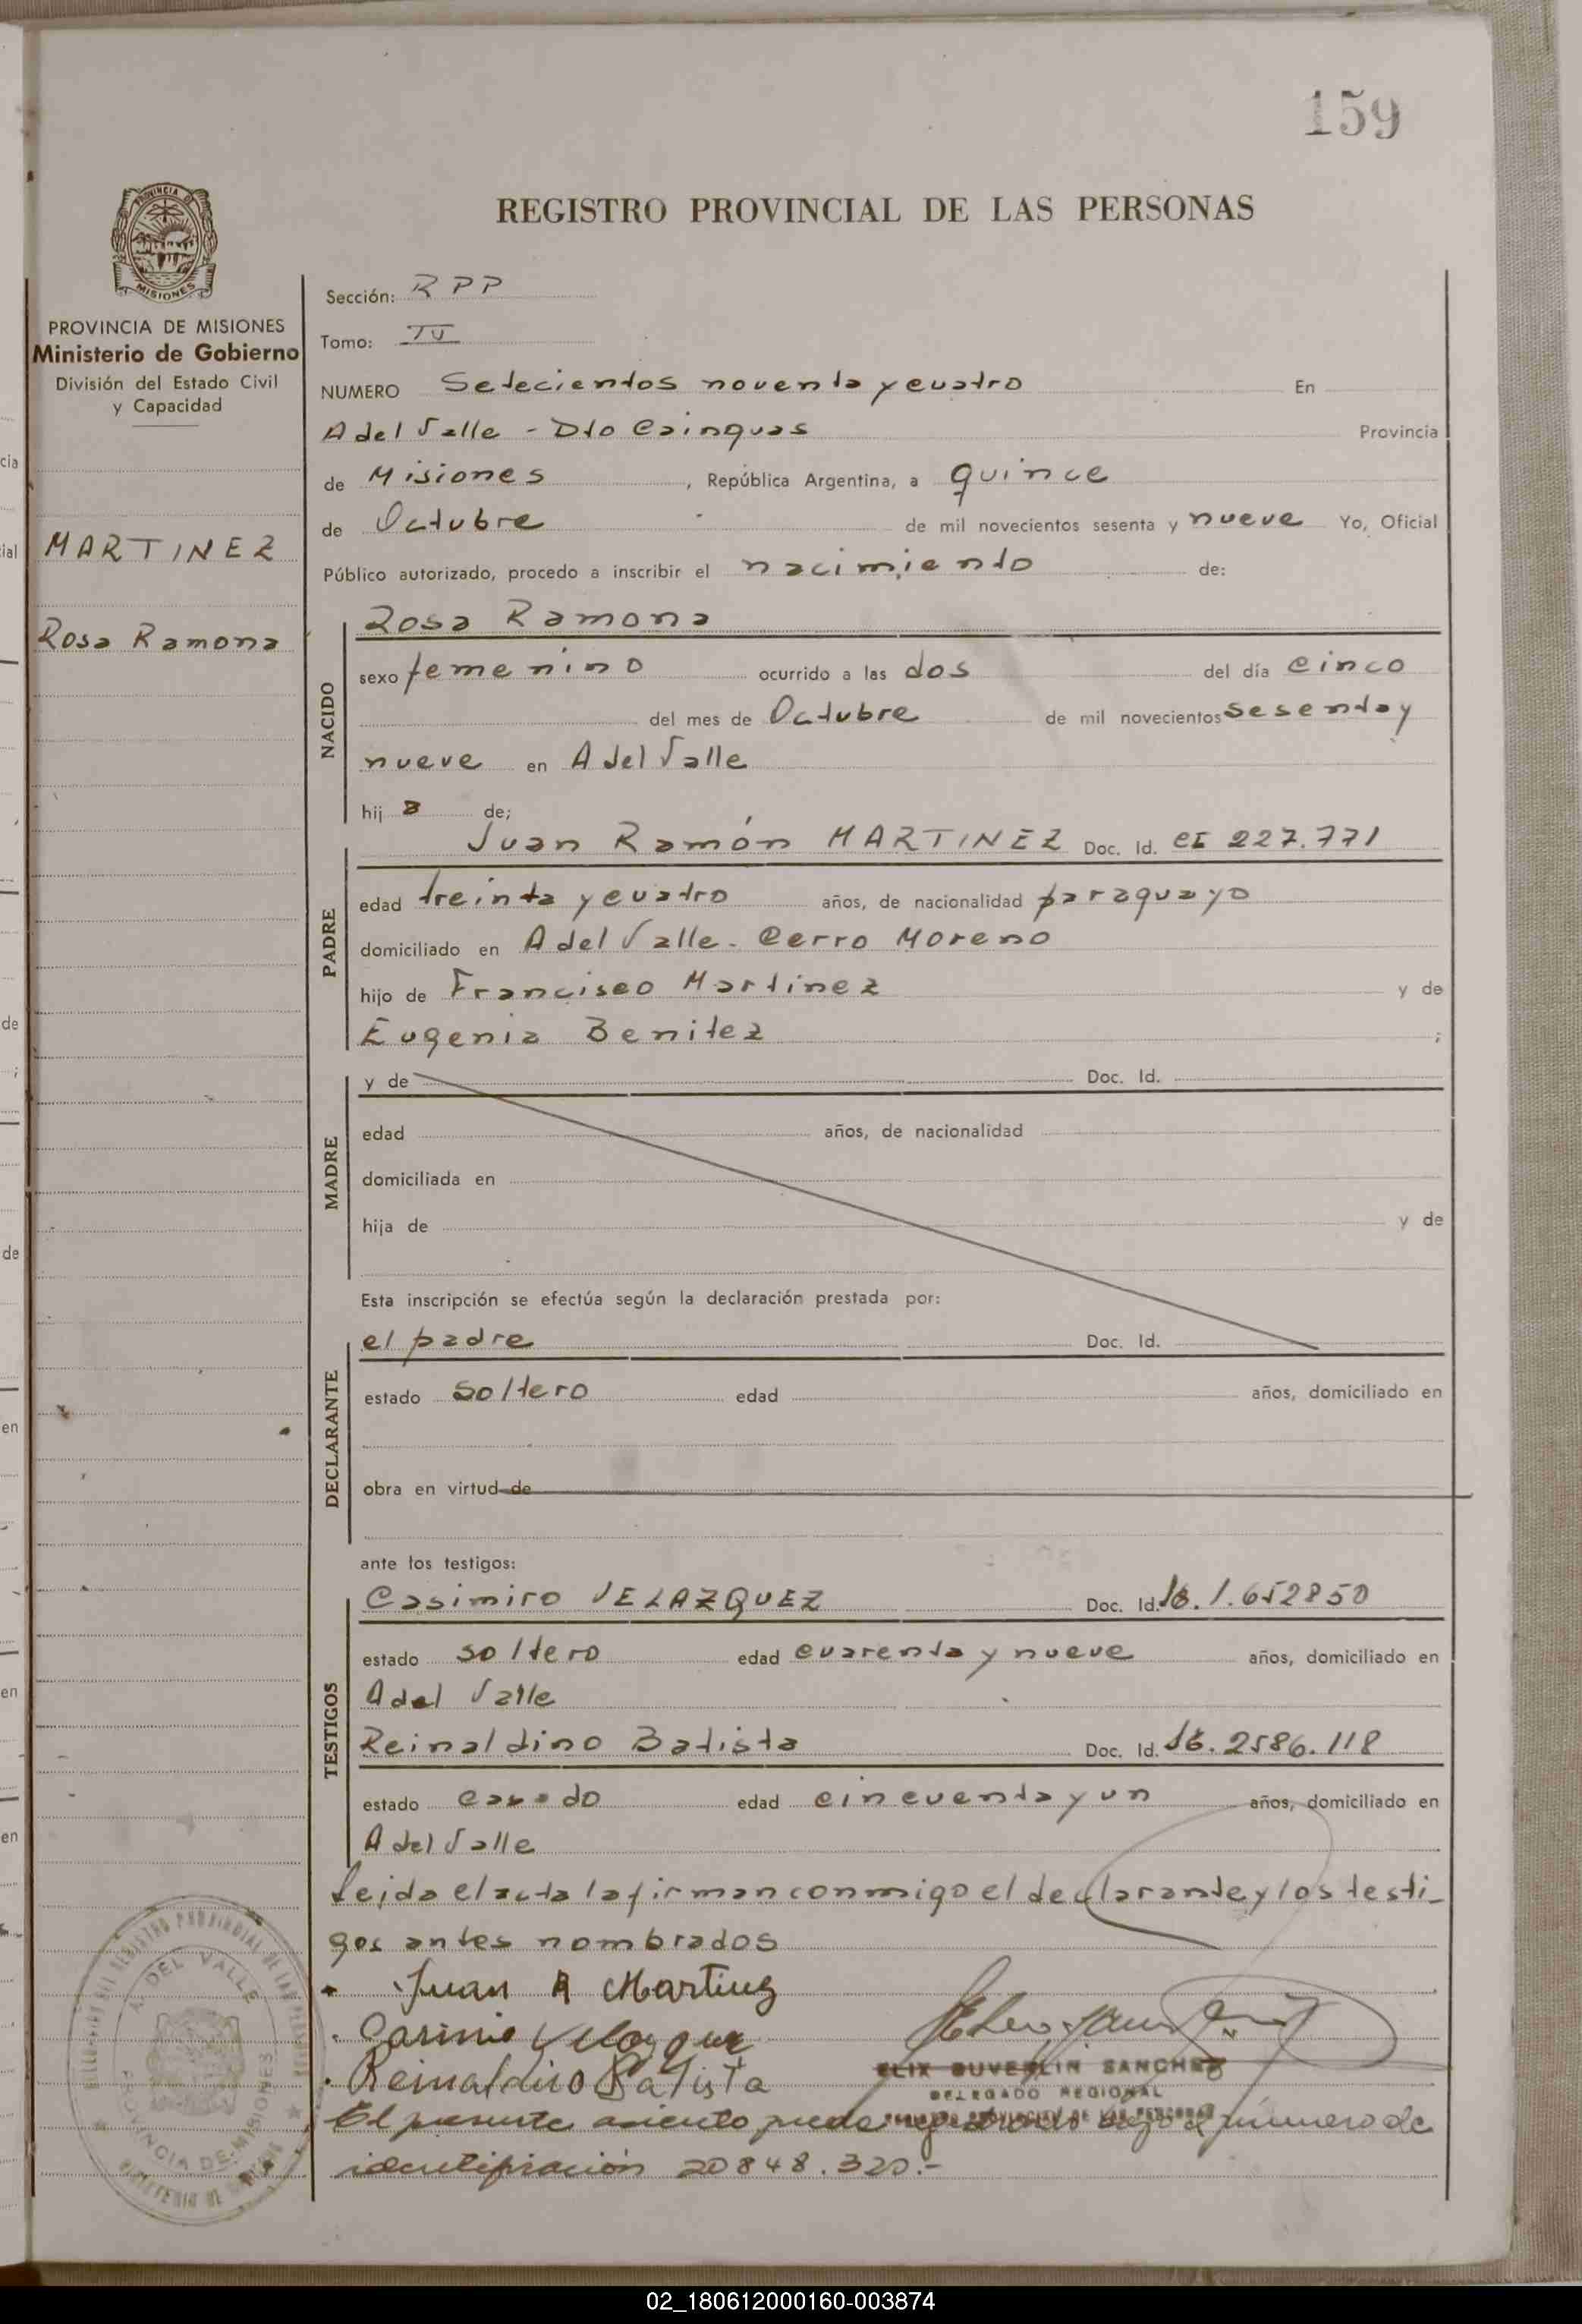 159
REGISTRO PROVINCIAL DE LAS PERSONAS
PROVINCIA DE
MISIONES
PROVINCIA DE MISIONES
Ministerio de Gobierno
División del Estado Civil
y Capacidad
MARTINEZ
Rosa Ramona
Sección: RPP
Tomo: IV
NUMERO Setecientos noventa y cuatro En
A del Valle - Dto Cainguas Provincia
de Misiones, República Argentina, a quince
de Octubre de mil novecientos sesenta y nueve Yo, Oficial
Público autorizado, procedo a inscribir el nacimiento de:
NACIDO
Rosa Ramona
sexo femenino ocurrido a las dos del día cinco
del mes de Octubre de mil novecientos sesenta y
nueve en A del Valle
hij a de;
PADRE
Juan Ramón MARTINEZ Doc. Id. CI 227.771
edad treinta y cuatro años, de nacionalidad paraguayo
domiciliado en A del Valle - Cerro Moreno
hijo de Francisco Martinez y de
Eugenia Benitez ;
MADRE
y de Doc. Id.
edad años, de nacionalidad
domiciliada en
hija de y de
Esta inscripción se efectúa según la declaración prestada por:
DECLARANTE
el padre Doc. Id.
estado soltero edad años, domiciliado en
obra en virtud de
ante los testigos:
TESTIGOS
Casimiro VELAZQUEZ Doc. Id. 1.652850
estado soltero edad cuarenta y nueve años, domiciliado en
A del Valle
Reinaldino Batista Doc. Id. 2586.118
estado casado edad cincuenta y un años, domiciliado en
A del Valle
Leida el acta la firman conmigo el declarante y los testi-
gos antes nombrados
Juan R Martinez
Reinaldino Batista
ELIX DUVERLIN SANCHEZ
DELEGADO REGIONAL
El presente asiento puede bajo el número de
identificación 20848.320.-
A. DEL VALLE
PROVINCIA DE MISIONES
02_180612000160-003874